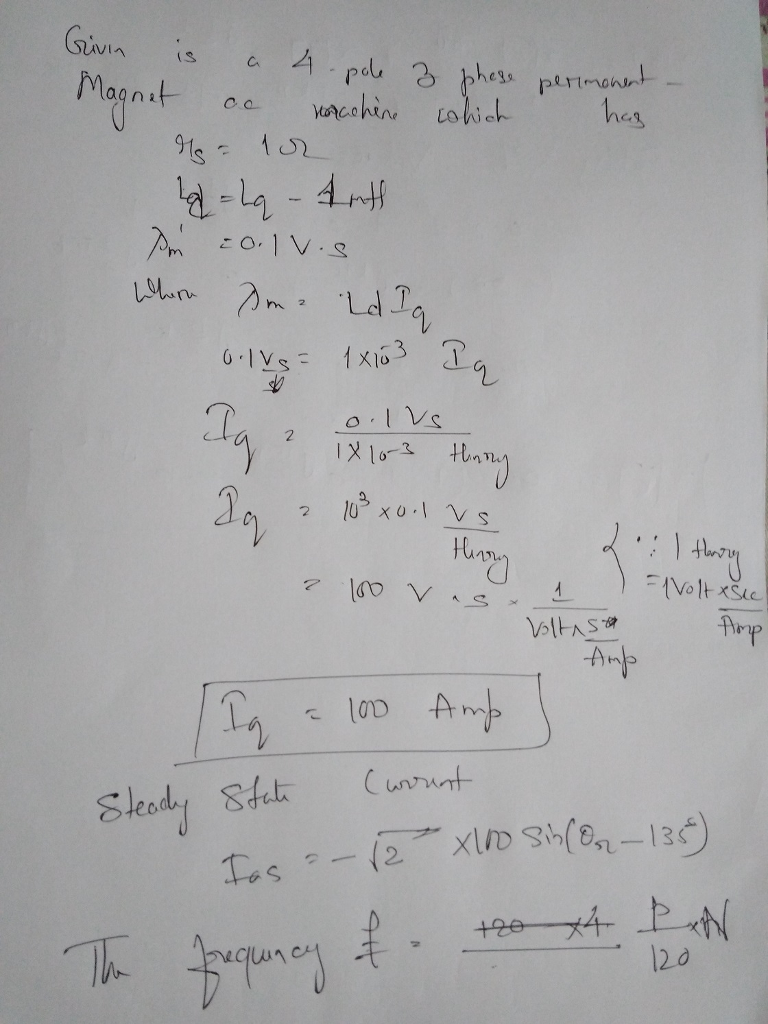 Givin is a 4-pole 3 phase perimanent-
Magnet ac machine which has
rs = 1Ω
Ld = Lq - 1mH
λm' = 0.1 V.s
Where λm = Ld Iq
0.1 Vs = 1×10³ Iq
Iq = 0.1 Vs / 1×10-3 Henry
Iq = 10³ × 0.1 Vs / Henry
= 100 V.s × 1 / Volt×S / Amp { ∵ 1 Henry = 1Volt×Sec / Amp
Iq = 100 Amp
Steady State Current
Ias = -√2 ×100 Sin(θr - 135°)
The frequency f = P×N / 120